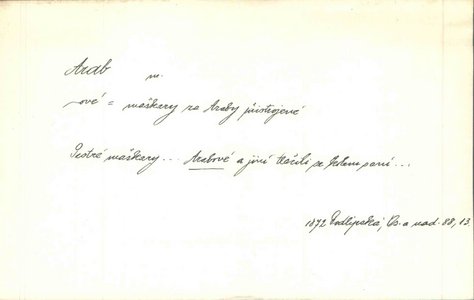 Arab m.
-ové = maškary za Araby přistrojené
Pestré maškary... Arabové a jiní tlačili se kolem saní...
1872 Podlipská, Os. a nad. 88, 13.